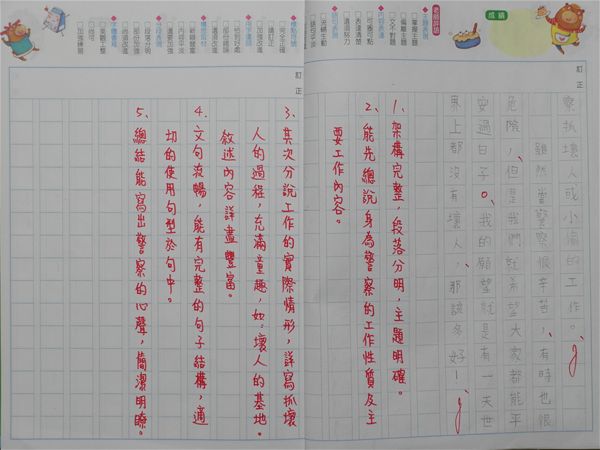 老師評語
成績
訂正
察抓壞人或小偷的工作。
雖然當警察很辛苦，有時也很
危險，但是我們就希望大家都能平
安過日子。我的願望就是有一天世
界上都沒有壞人，那該多好！
1、架構完整，段落分明，主題明確。
2、能先總說身為警察的工作性質及主
要工作內容。
訂正
3、其次分說工作的實際情形，詳寫抓壞
人的過程，充滿童趣，如：壞人的基地。
敘述內容詳盡豐富。
4、文句流暢，能有完整的句子結構，適
切的使用句型於句中。
5、總結能寫出警察的心聲，簡潔明瞭。